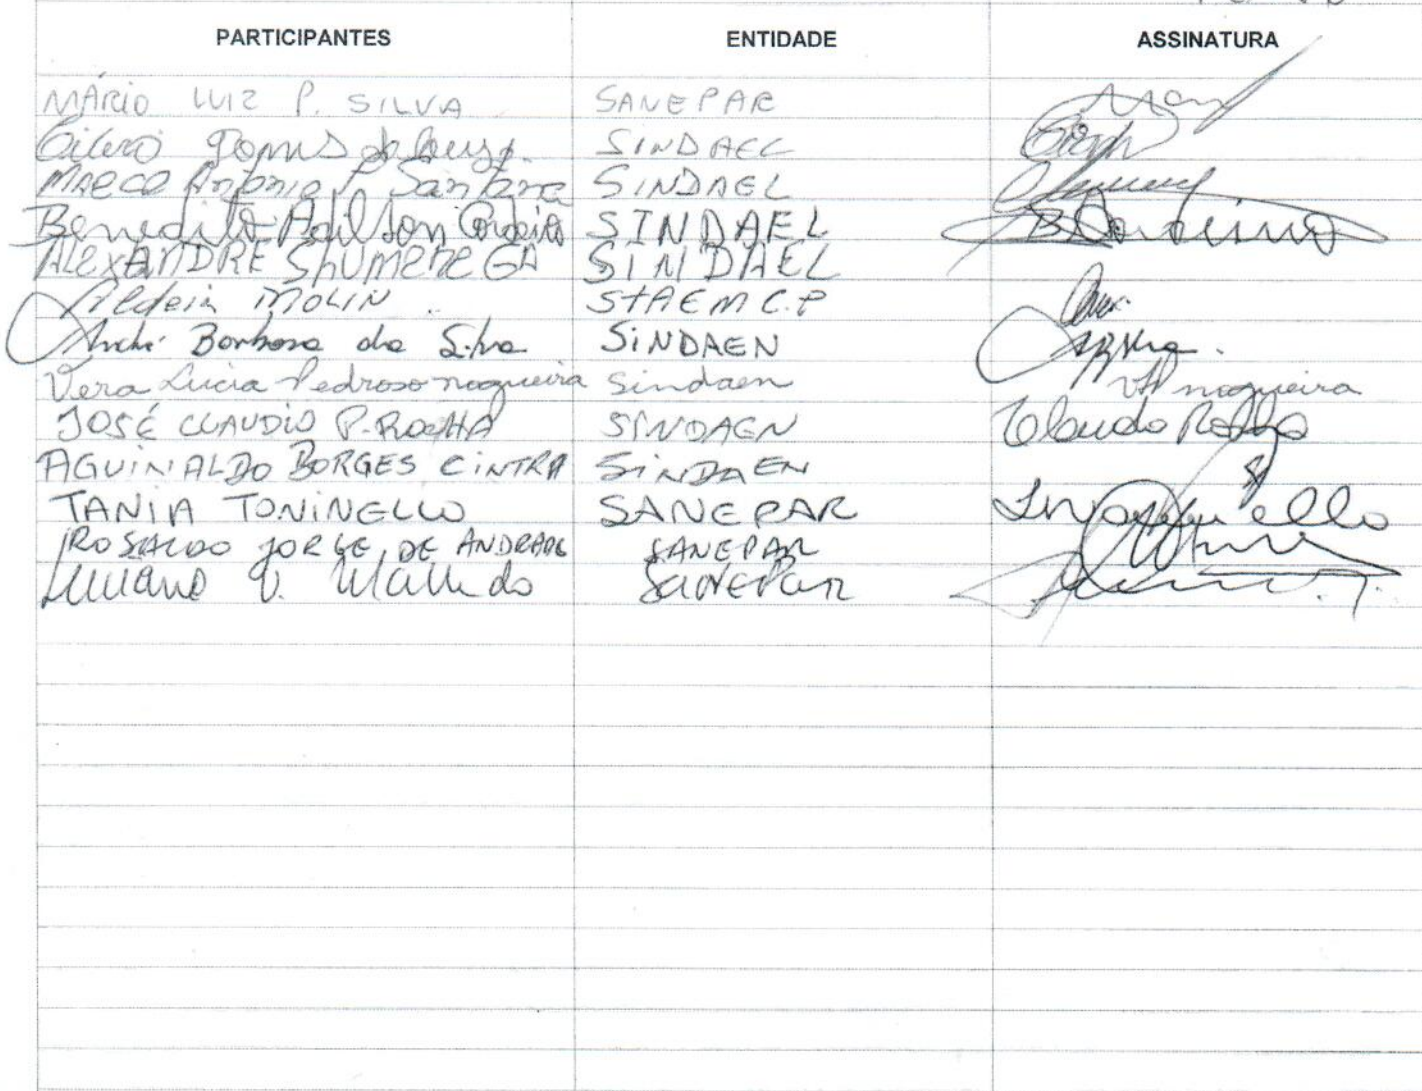 PARTICIPANTES ENTIDADE ASSINATURA
MÁRIO LUIZ P. SILVA SANEPAR
Gomes de Souza SINDAEL
MARCO Antonio P. Santana SINDAEL
Benedito Adilson Cordeiro SINDAEL B Cordeiro
ALEXANDRE SINDAEL
MOLIN STAEMCP
André Barbosa da Silva SINDAEN
Vera Lucia Pedroso nogueira Sindaen VLP nogueira
JOSÉ CLAUDIO P. ROCHA SINDAEN Claudio Rocha
AGUINALDO BORGES CINTRA SINDAEN
TANIA TONINELLO SANEPAR
ROSALDO JORGE DE ANDRADE SANEPAR
Luciano V. SANEPAR